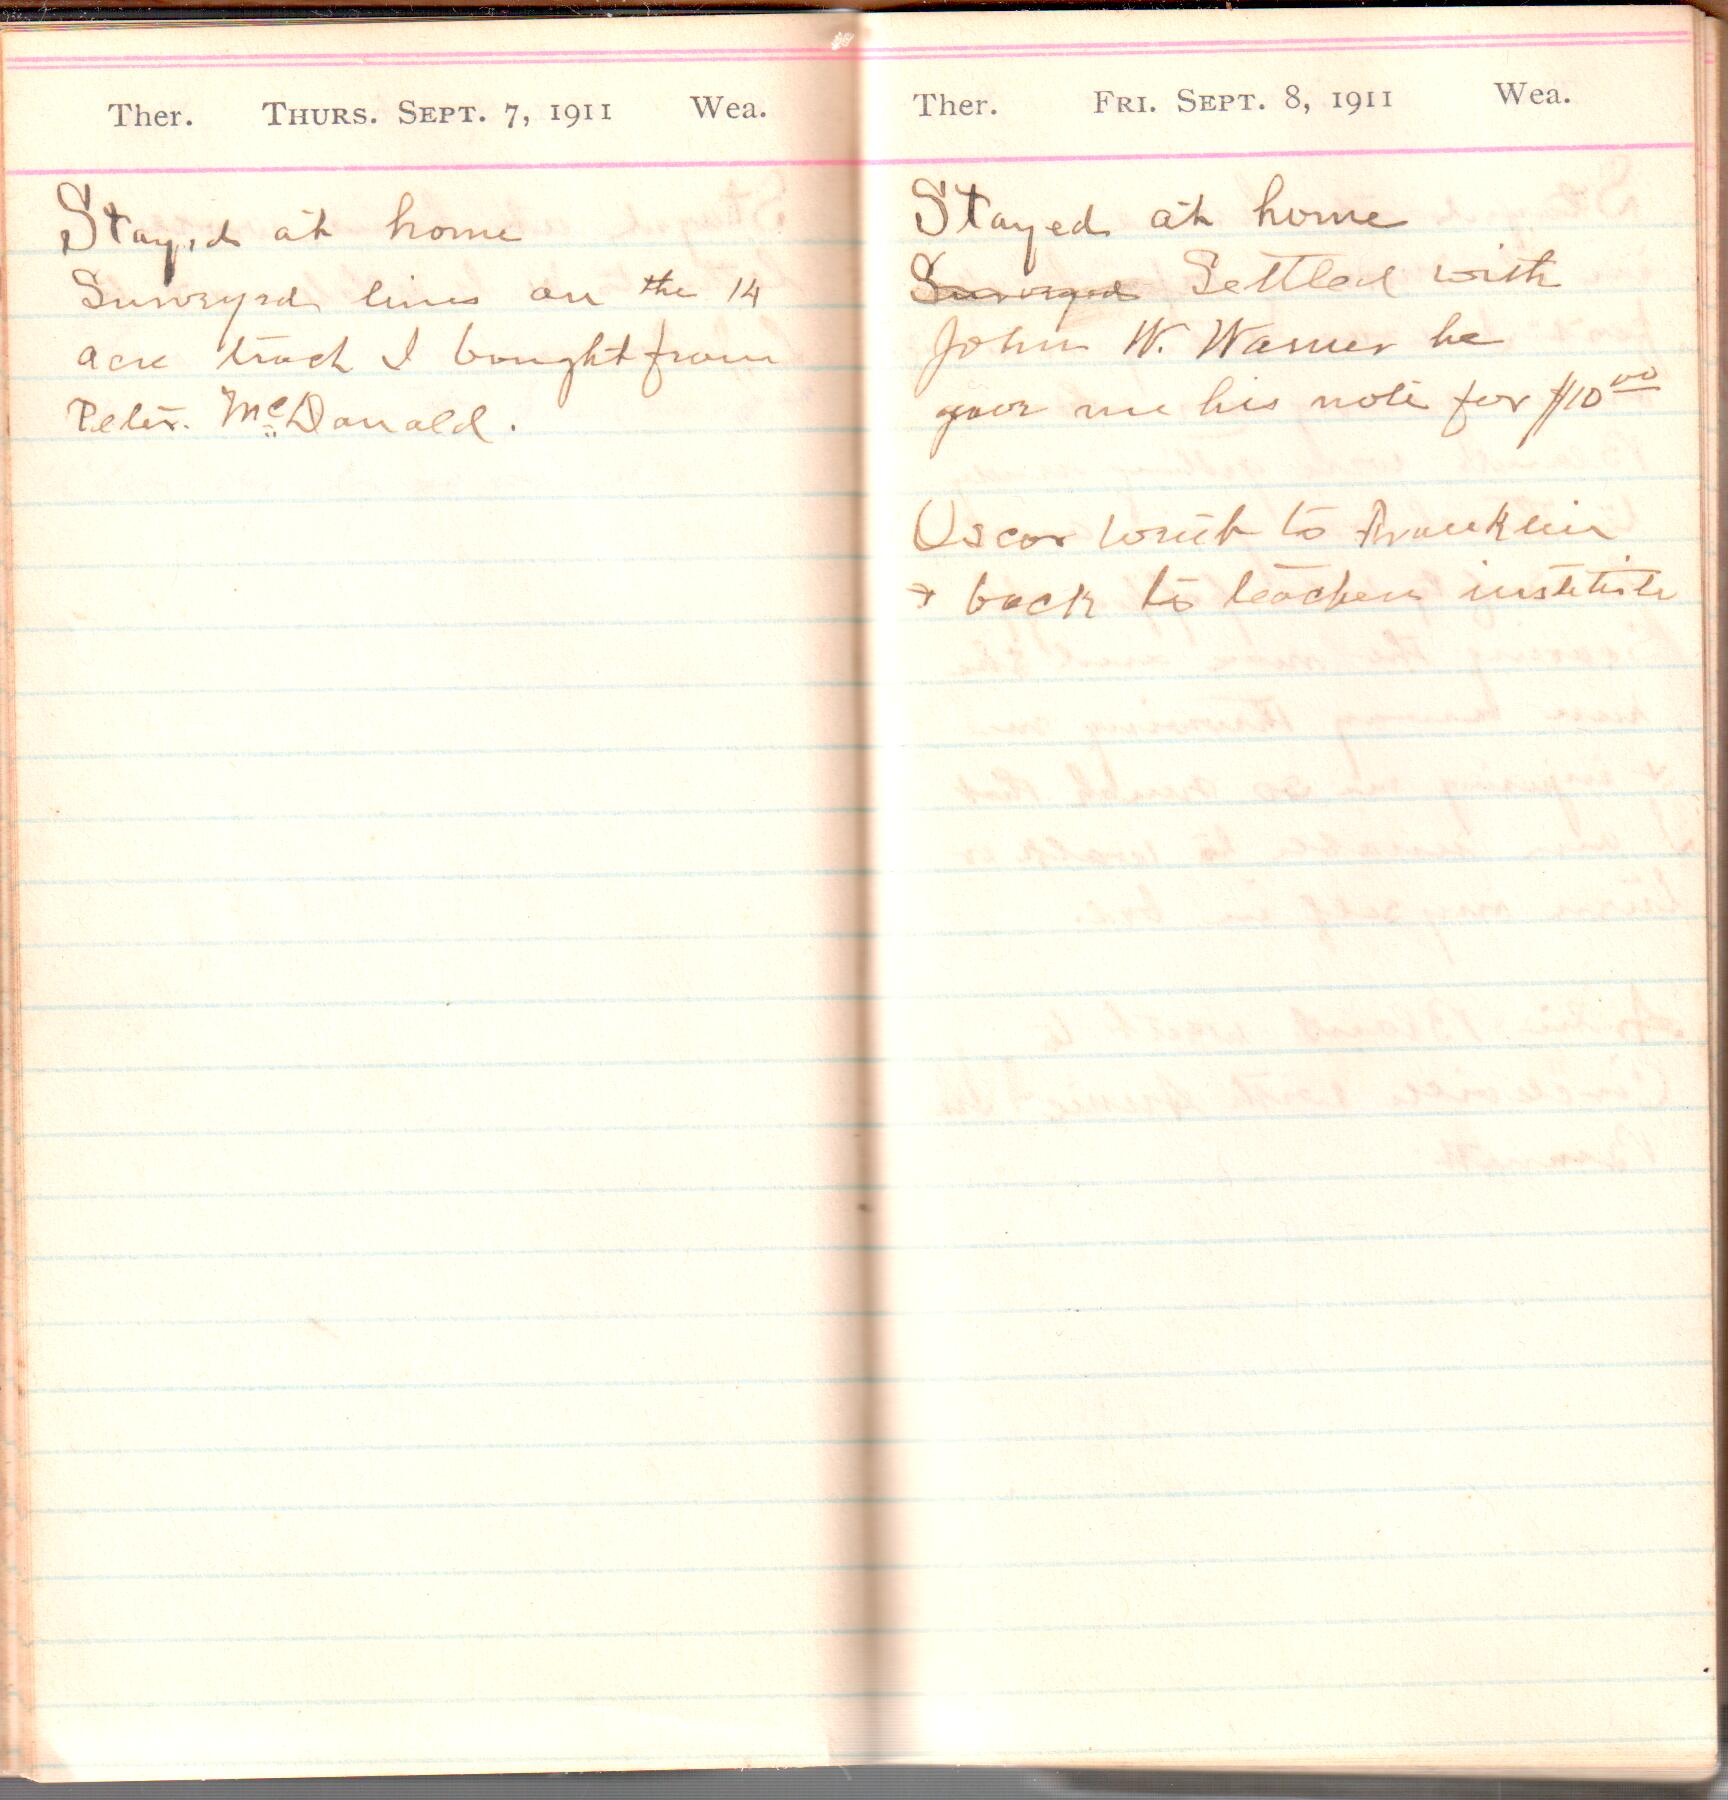 Ther. THURS. SEPT. 7, 1911 Wea.
Stayed at home
Surveyed lines on the 14
acre track I bought from
Peter. McDonald.
Ther. FRI. SEPT. 8, 1911 Wea.
Stayed at home
Surveyed Settled with
John W. Warner he
gave me his note for $10 00
Oscar went to Franklin
+ back to teachers institute